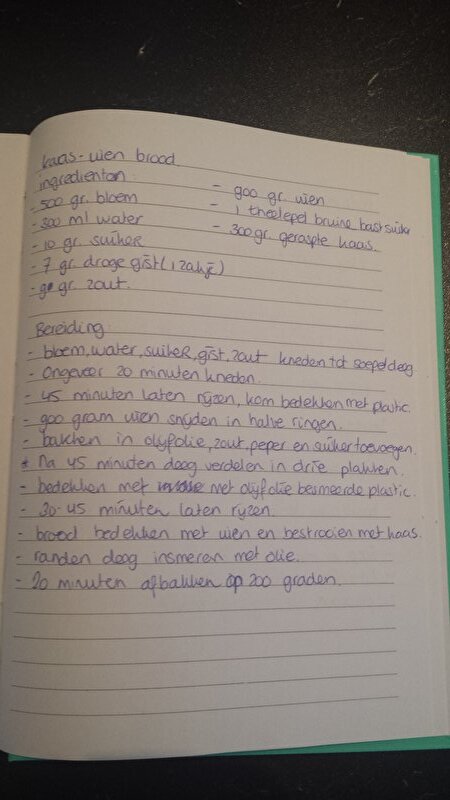 kaas-uien brood
ingredienten
- 500 gr. bloem
- 300 ml water
- 10 gr. suiker
- 7 gr. droge gist (1 zakje)
- gr. zout.
- 900 gr. uien
- 1 theelepel bruine bastsuiker
- 300 gr. geraspte kaas.
Bereiding
- bloem, water, suiker, gist, zout kneden tot soepel deeg.
- Ongeveer 20 minuten kneden.
- 45 minuten laten rijzen, kom bedekken met plastic.
- 900 gram uien snijden in halve ringen.
- bakken in olijfolie, zout, peper en suiker toevoegen.
* Na 45 minuten deeg verdelen in drie plakken.
- bedekken met met olijfolie besmeerde plastic.
- 30-45 minuten laten rijzen.
- brood bedekken met uien en bestrooien met kaas.
- randen deeg insmeren met olie.
- 20 minuten afbakken op 200 graden.